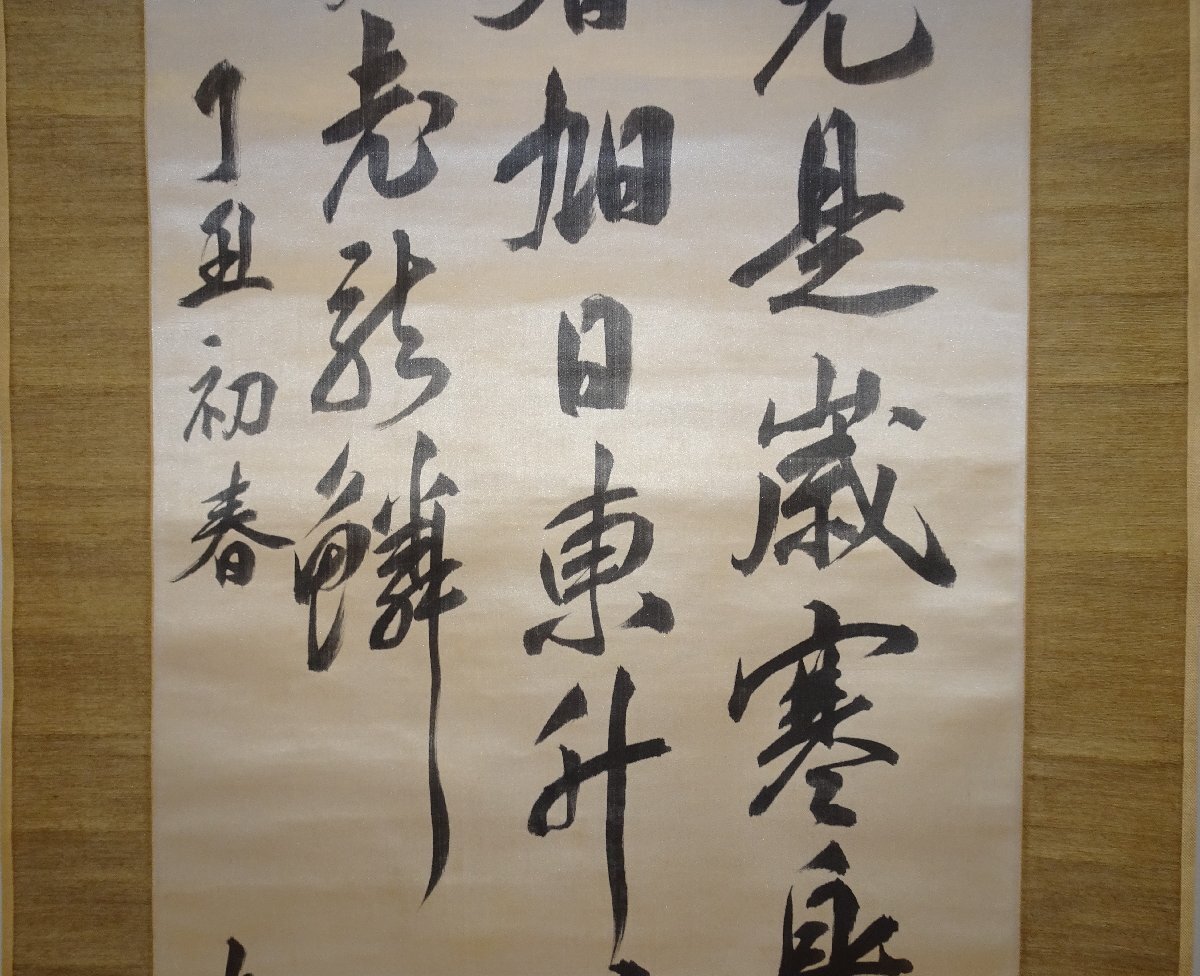 是歲寒身
旭日東升
老龍鱗
丁丑初春